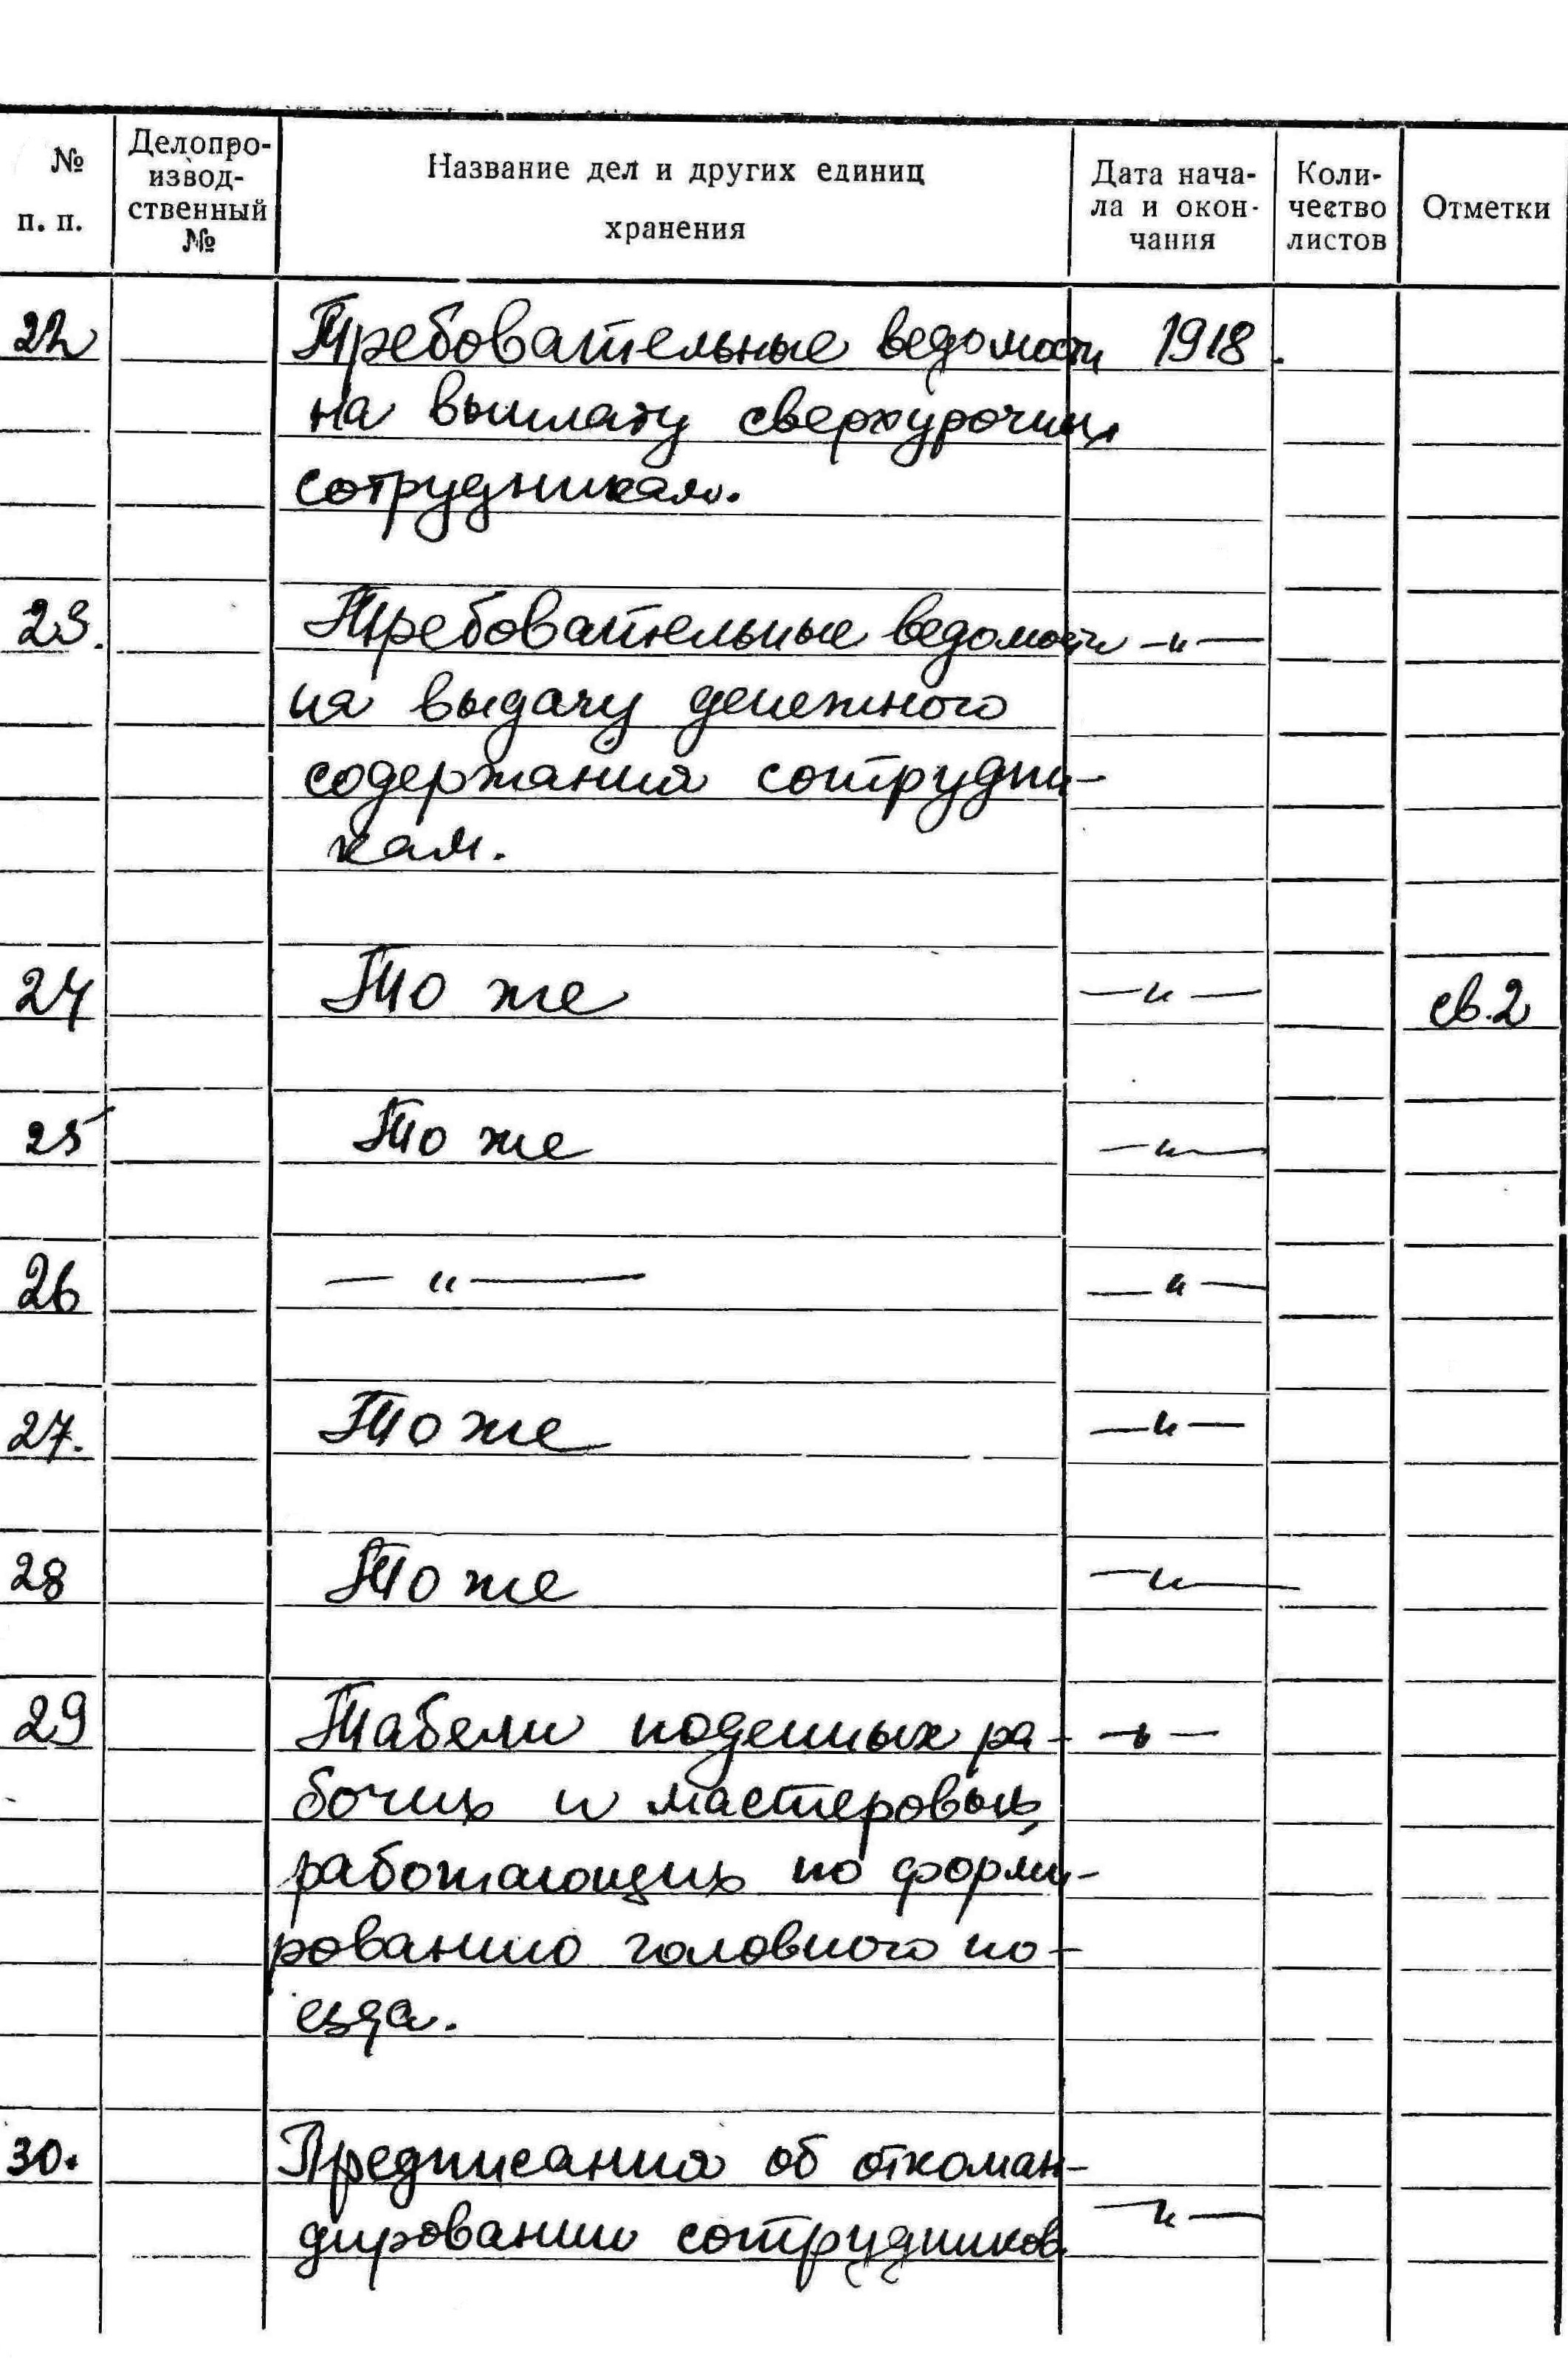 № п. п.
Делопро-
извод-
ственный
№
Название дел и других единиц
хранения
Дата нача-
ла и окон-
чания
Коли-
чество
листов
Отметки
22 Требовательные ведомости 1918.
на выплату сверхурочных
сотрудникам.
23. Требовательные ведомости —"—
на выдачу денежного
содержания сотрудни-
кам.
24 То же —"— св.2
25 То же —"—
26 —"— —"—
27. То же —"—
28 То же —"—
29 Табели поденных ра- —"—
бочих и мастеровых,
работающих по форми-
рованию головного по-
езда.
30. Предписания об откоман-
дировании сотрудников. —"—